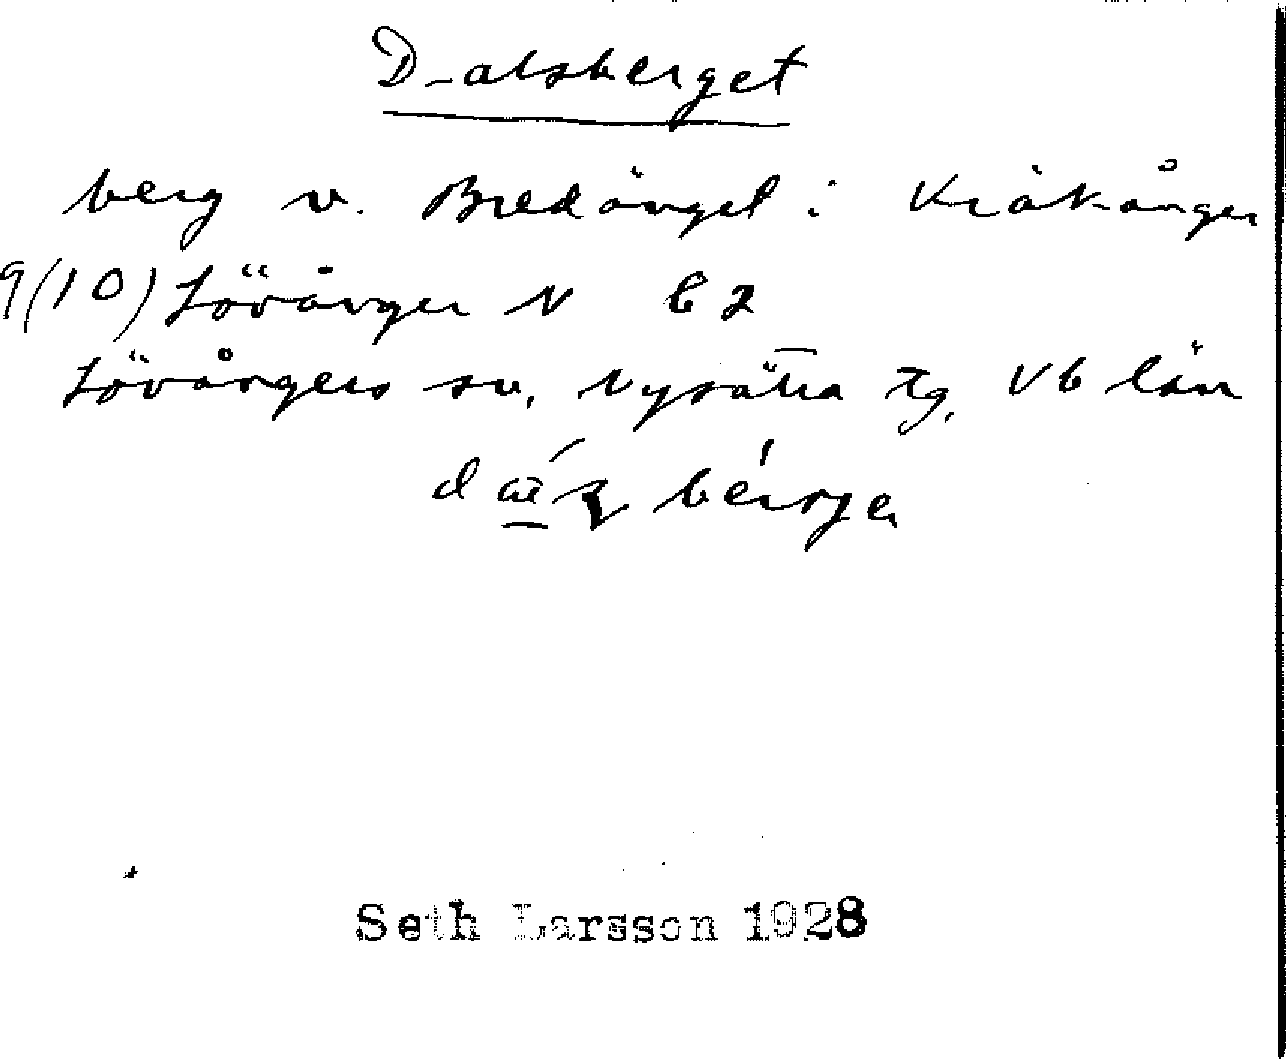 D-alsberget
berg v. Bredänget i Kräkånger
9(10) Lövånger N b2
Lövångers sn, Nysätra tg, Vb län
Seth Larsson 1928